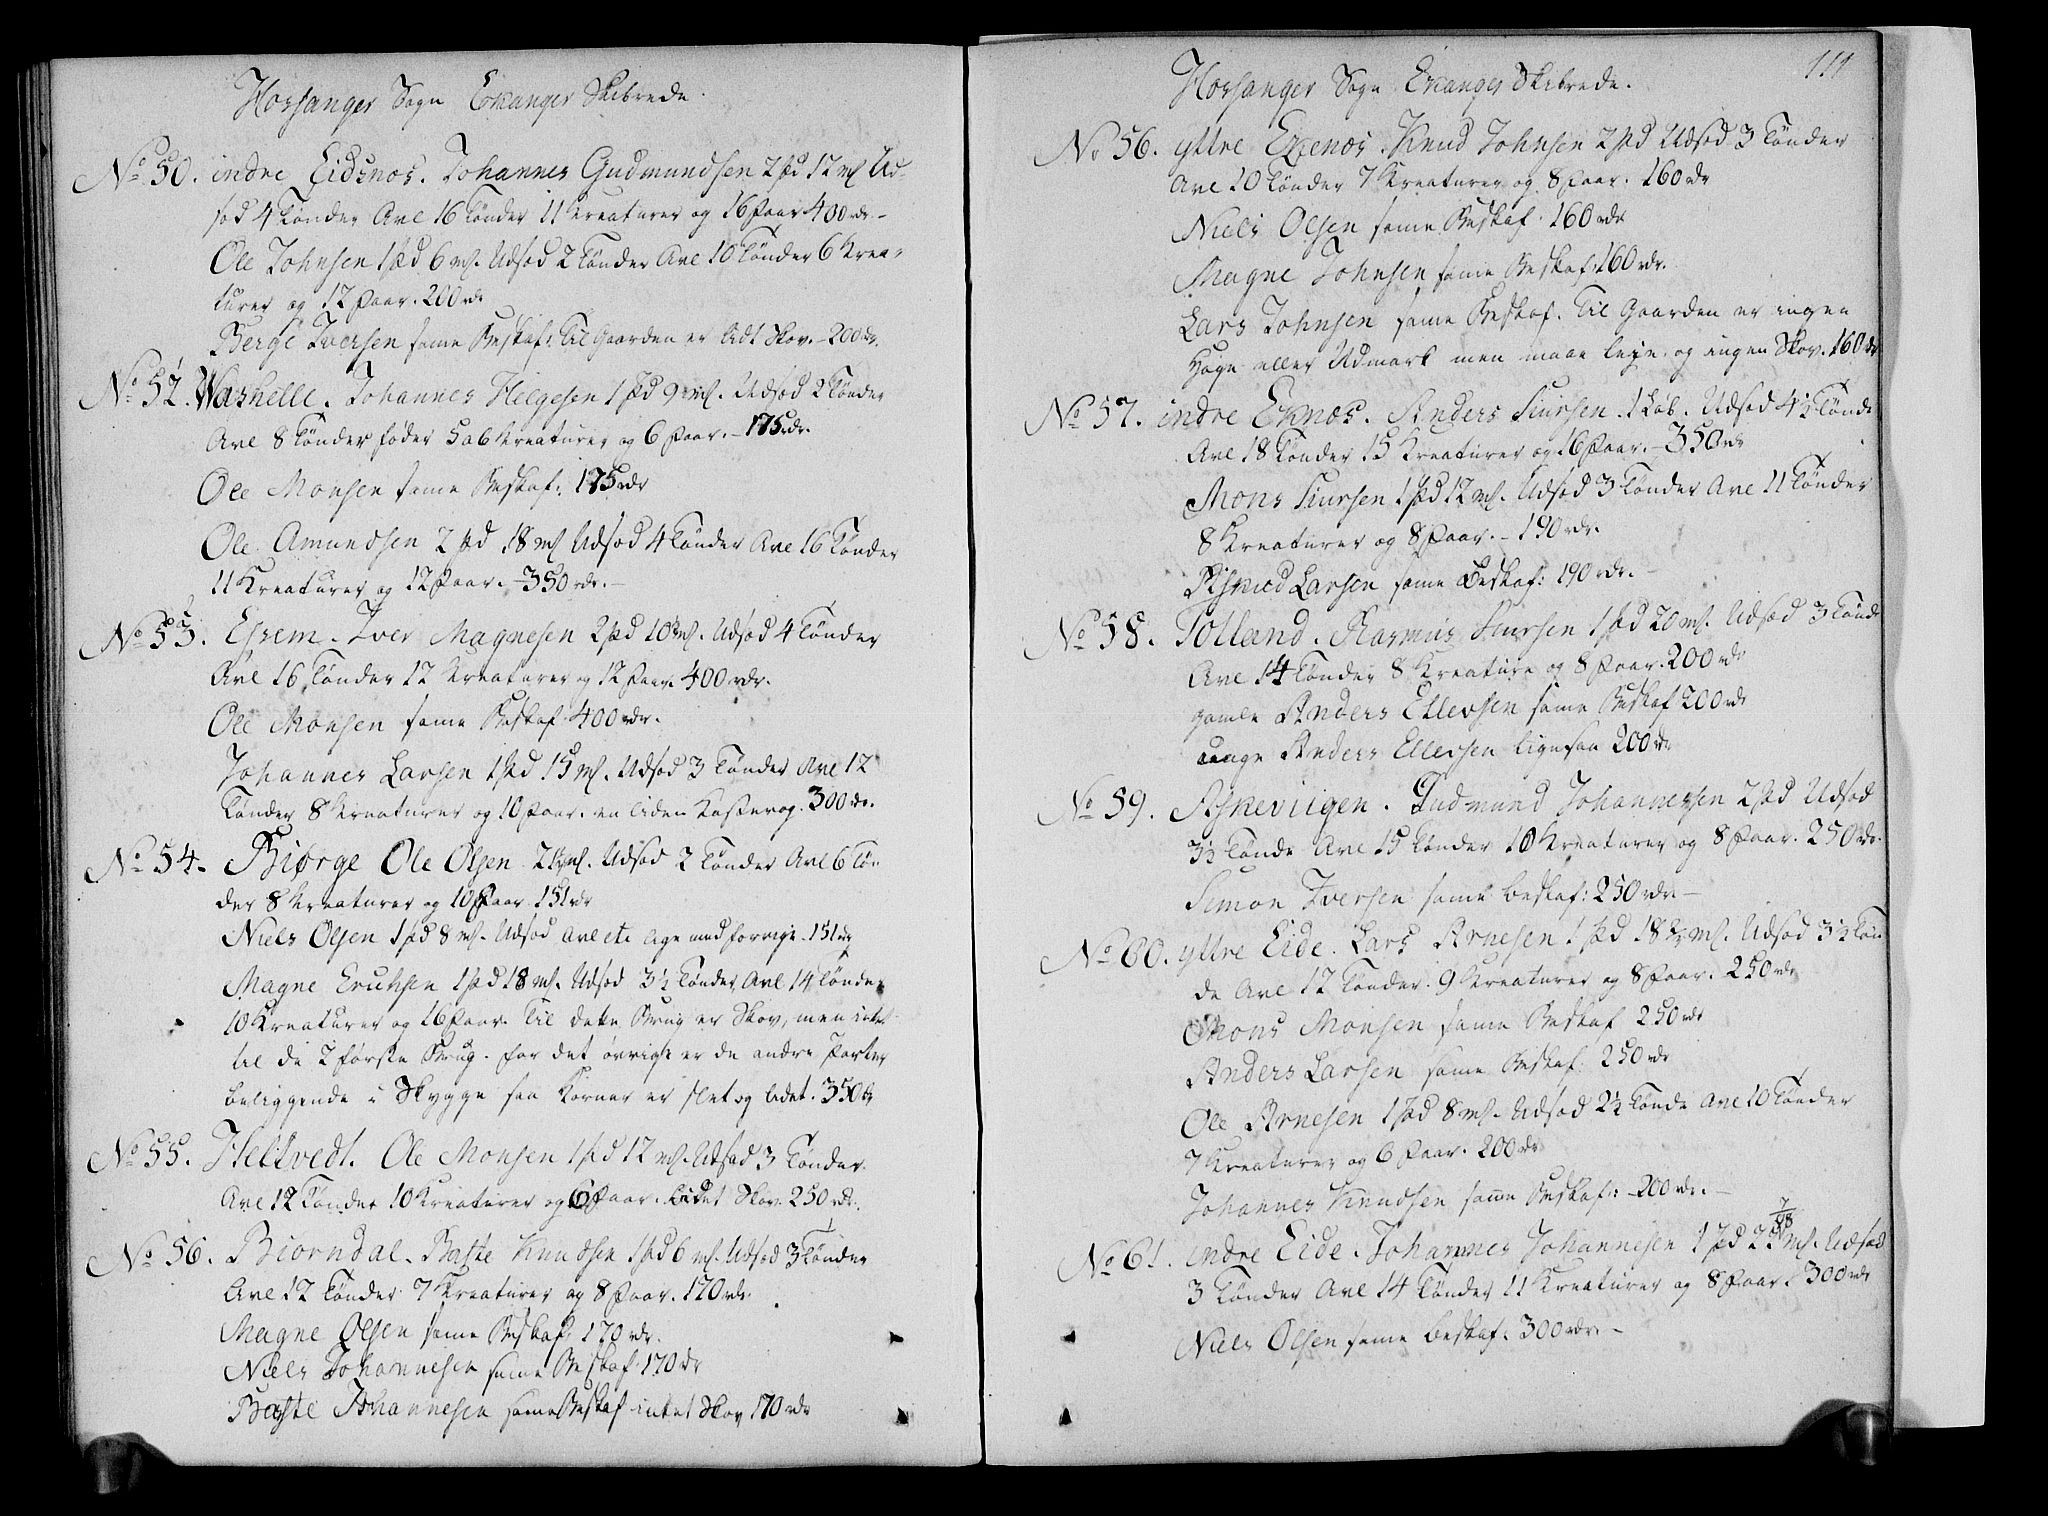 Hosanger Sogn Exanger Skibrede.
No 50. indre Eidsnes. Johannes Gudmundsen 2 pd 12 ml Ud-
sød 4 Tønder Avl 16 Tønder 11 Kreaturer og 16 Faar 400 rdr –
Ole Johnsen 1 pd 6 ml. Udsød 2 Tønder Avl 10 Tønder 6 Krea-
turer og 12 Faar. 200 rdr
Berge Iversen same Beskaf: Til Gaarden er lidt Skov. – 200 rdr.
No 52. Washelle. Johannes Helgesen 1 pd 9 ml. Udsød 2 Tønder
Avl 8 Tønder føder 5 a 6 Kreaturer og 6 Faar. – 175 rdr.
Ole Monsen same Beskaf: 175 rdr
Ole Amundsen 2 pd 18 ml Udsød 4 Tønder Avl 16 Tønder
11 Kreaturer og 12 Faar. – 350 rdr. –
No 53. Iver Magnesen 2 pd ml. Udsød 4 Tønder
Avl 16 Tønder 12 Kreaturer og 12 Faar. 400 rdr.
Ole Monsen same Beskaf 400 rdr.
Johannes Larsen 1 pd 15 ml. Udsød 3 Tønder Avl 12
Tønder 8 Kreaturer og 10 Faar. en liden 300 rdr.
No 54. Biørge Ole Olsen Udsød 2 Tønder Avl 6 Tøn-
der 8 Kreaturer og 10 Faar 151 rdr
Niels Olsen 1 pd 8 ml. Udsød Avl etc lige med forrige. 151 rdr
Magne Erichsen 1 pd 18 ml. Udsød 3½ Tønder Avl 14 Tønder
10 Kreaturer og 16 Faar. Til dette Brug er Skov, men intet
til de 2 første Brug. for det øvrige er de andre Parter
beliggende i Skygge saa Kornet er slet og ladet. 350 rdr
No 55. Heltvedt. Ole Monsen 1 pd 12 ml. Udsød 3 Tønder
Avl 12 Tønder 10 Kreaturer og 6 Faar. lidet Skov 250 rdr.
No 56. Biorndal. Baste Knudsen 1 pd 6 ml. Udsød 3 Tønder
Avl 12 Tønder 7 Kreaturer og 8 Faar. 170 rdr.
Magne Olsen same Beskaf: 170 rdr.
Niels Johannesen same Beskaf: 170 rdr
Baste Johannesen same Beskaf intet Skov 170 rdr
111
Hosanger Sogn Exanger Skibrede.
No 56. yttre Exenes. Knud Johnsen 2 pd Udsød 3 Tønder
Avl 10 Tønder 7 Kreaturer og 8 Faar. 160 rdr
Niels Olsen same Beskaf. 160 rdr
Magne Johnsen same Beskaf: 160 rdr.
Lars Johnsen same Beskaf. Til Gaarden er ingen
Hage eller Udmark men maae leje og ingen Skov. 160 rdr
No 57. indre Exnes. Anders Siursen. 1 Løb. Udsød 4½ Tønde
Avl 18 Tønder 15 Kreaturer og 16 Faar. – 350 rdr
Mons Siursen 1 pd 12 ml. Udsød 3 Tønder Avl 11 Tønder
8 Kreaturer og 8 Faar. – 190 rdr.
Larsen same Beskaf: 190 rdr. –
No 58. Tolland. Rasmus Siursen 1 pd 20 ml. Udsød 3 Tønde
Avl 14 Tønder 8 Kreature og 8 Faar. 200 rdr
gamle Anders Ellevsen same Beskaf 200 rdr
unge Anders Ellevsen ligesaa 200 rdr
No 59. Askeviigen. Gudmund Johannessen 2 pd Udsød
3½ Tønde Avl 15 Tønder 10 Kreaturer og 8 Faar. 250 rdr.
Simon Iversen same beskaf: 250 rdr –
No 60. yttre Eide. Lars Arnesen 1 pd 18 ml. Udsød 3½ Tøn-
de Avl 12 Tønder. 9 Kreaturer og 8 Faar. 250 rdr
Mons Monsen same Beskaf 250 rdr
Anders Larsen same Beskaf: 250 rdr
Ole Arnesen 1 pd 8 ml. Udsød 2½ Tønde Avl 10 Tønder
7 Kreaturer og 6 Faar. 200 rdr
Johannes Knudsen same Beskaf: – 200 rdr. –
No 61. indre Eide. Johannes Johannesen 1 pd ml. Udsød
3 Tønder Avl 14 Tønder 11 Kreaturer og 8 Faar. 300 rdr
Niels Olsen same beskaf. 300 rdr. –